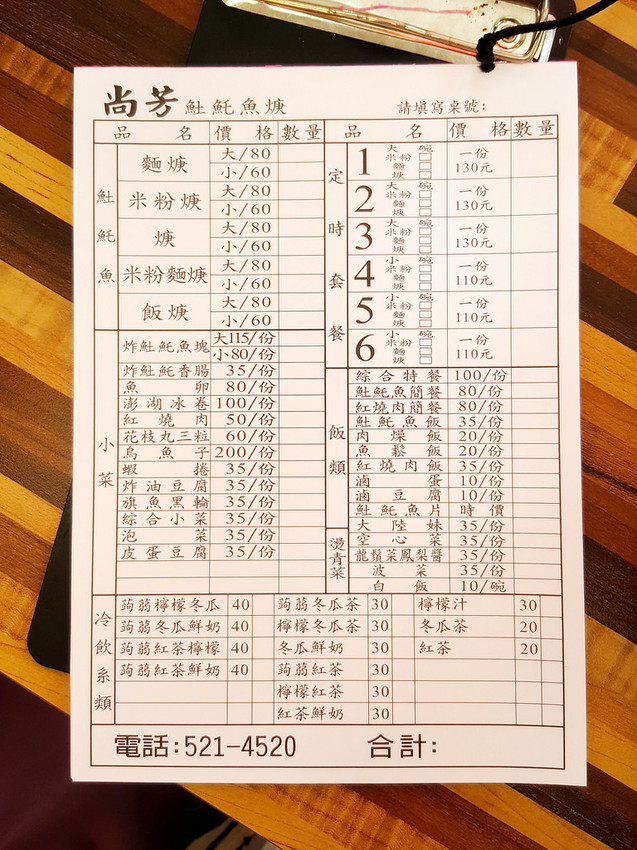 尚芳 魠魠魚焿 請填寫桌號:
品名 價格 數量 品名 價格 數量
魠魠魚
麵焿 大/80
小/60
米粉焿 大/80
小/60
焿 大/80
小/60
米粉麵焿 大/80
小/60
飯焿 大/80
小/60
小菜
炸魠魠魚塊 大115/份
小80/份
炸魠魠香腸 35/份
魚卵 80/份
澎湖冰卷 100/份
紅燒肉 50/份
花枝丸三粒 60/份
烏魚子 200/份
蝦捲 35/份
炸油豆腐 35/份
旗魚黑輪 35/份
綜合小菜 35/份
泡菜 35/份
皮蛋豆腐 35/份
定時套餐
1 大碗 米粉 麵 焿 一份 130元
2 大碗 米粉 麵 焿 一份 130元
3 大碗 米粉 麵 焿 一份 130元
4 小碗 米粉 麵 焿 一份 110元
5 小碗 米粉 麵 焿 一份 110元
6 小碗 米粉 麵 焿 一份 110元
飯類
綜合特餐 100/份
魠魠魚簡餐 80/份
紅燒肉簡餐 80/份
魠魠魚飯 35/份
肉燥飯 20/份
魚鬆飯 20/份
紅燒肉飯 35/份
滷蛋 10/份
滷豆腐 10/份
魠魠魚片 時價
燙青菜
大陸妹 35/份
空心菜 35/份
龍鬚菜鳳梨醬 35/份
波菜 35/份
白飯 10/碗
冷飲系類
蒟蒻檸檬冬瓜 40 蒟蒻冬瓜茶 30 檸檬汁 30
蒟蒻冬瓜鮮奶 40 檸檬冬瓜茶 30 冬瓜茶 20
蒟蒻紅茶檸檬 40 冬瓜鮮奶 30 紅茶 20
蒟蒻紅茶鮮奶 40 蒟蒻紅茶 30
檸檬紅茶 30
紅茶鮮奶 30
電話:521-4520 合計: